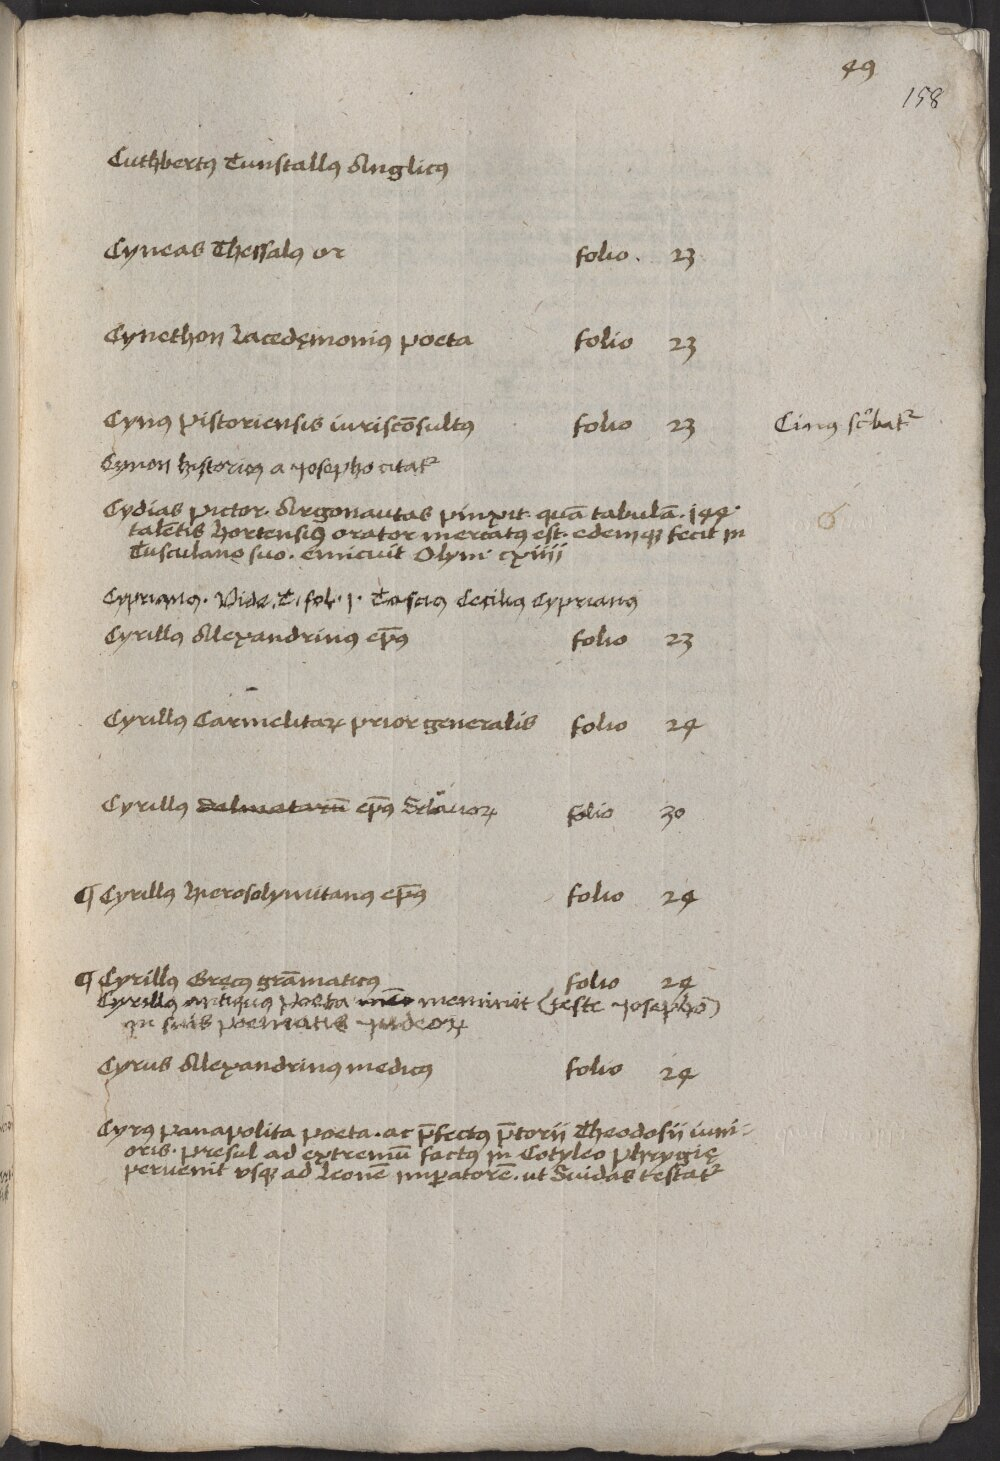 49
158
Cuthbertꝰ Tunstallꝰ Anglicꝰ
Cyneas Thessalꝰ or folio. 23
Cynethon Lacedęmoniꝰ poeta folio 23
Cynꝰ Pistoriensis iuriscōsultꝰ folio 23 Cinꝰ scͥbatᷣ
Cymon historicꝰ a Iosepho citatᷣ
Cydias pictor. Argonautas pinxit. quā tabulā. 144.
talētis Hortensiꝰ orator mercatꝰ est. edemqꝫ fecit in
Tusculano suo. emicuit Olym. cxiiii
Cyprianꝰ. Vide. T. fol. 1. Tascius Ceciliꝰ Cyprianꝰ
Cyrillꝰ Alexandrinꝰ ep̄ꝰ folio 23
Cyrillꝰ Carmelitaꝝ prior generalis folio 24
Cyrillꝰ dalmatarū ep̄ꝰ Sclauoꝝ folio 30
¶ Cyrillꝰ Hierosolymitanꝰ ep̄ꝰ folio 24
¶ Cyrillꝰ Gręcꝰ grāmaticꝰ folio 24
Cyrillꝰ antiquꝰ poeta meminit (teste Iosepho)
in suis poematis Iudeoꝝ
Cyrus Alexandrinꝰ medicꝰ folio 24
Cyrꝰ panapolita poeta. ac p̄fectꝰ p̄torij Theodosij iuni-
oris. presul ad extremū factꝰ in Cotyleo Phrygię
peruenit vsqꝫ ad Leonē imꝑatorē. ut Suidas testatᷣ